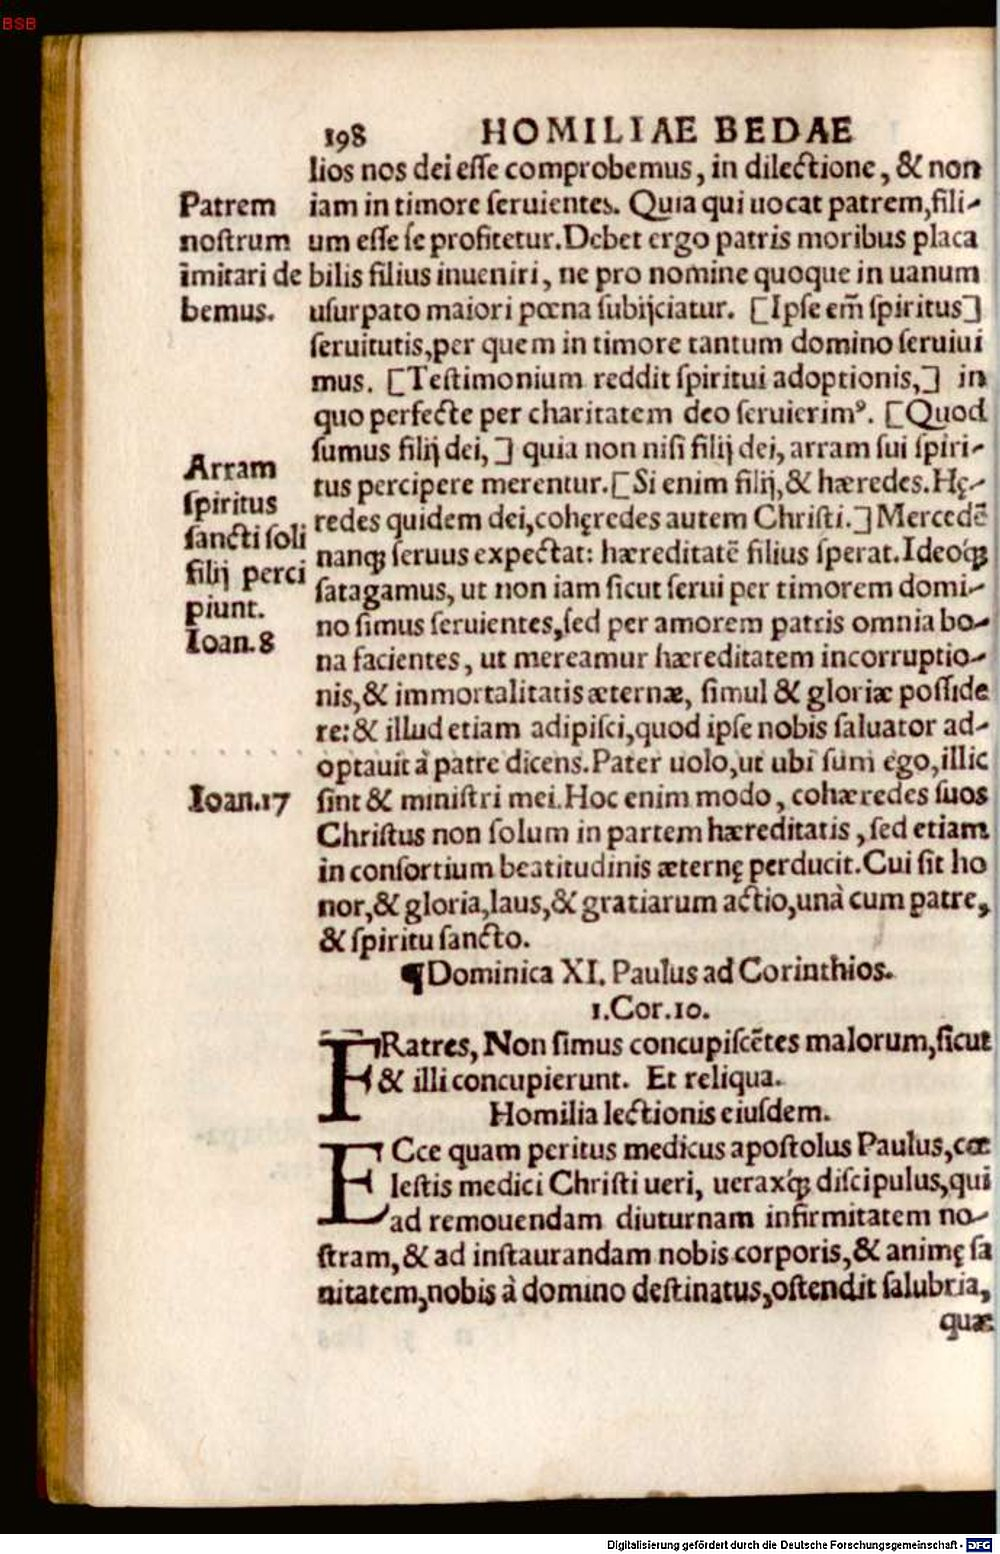 BSB
198 HOMILIAE BEDAE
lios nos dei eſſe comprobemus, in dilectione, & non
iam in timore ſeruientes. Quia qui uocat patrem, fili-
um eſſe ſe profitetur. Debet ergo patris moribus placa
bilis filius inueniri, ne pro nomine quoque in uanum
uſurpato maiori pœna ſubijciatur. [Ipſe em̃ ſpiritus]
ſeruitutis, per quem in timore tantum domino ſeruiui
mus. [Teſtimonium reddit ſpiritui adoptionis,] in
quo perfecte per charitatem deo ſeruierimꝰ. [Quod
ſumus filij dei,] quia non niſi filij dei, arram ſui ſpiri-
tus percipere merentur. [Si enim filij, & hæredes. Hę-
redes quidem dei, cohęredes autem Chriſti.] Mercedẽ
nanqꝫ ſeruus expectat: hæreditatẽ filius ſperat. Ideoq́ꝫ
ſatagamus, ut non iam ſicut ſerui per timorem domi-
no ſimus ſeruientes, ſed per amorem patris omnia bo-
na facientes, ut mereamur hæreditatem incorruptio-
nis, & immortalitatis æternæ, ſimul & gloriæ poſſide
re: & illud etiam adipiſci, quod ipſe nobis ſaluator ad-
optauit à patre dicens. Pater uolo, ut ubi ſum ego, illic
ſint & miniſtri mei. Hoc enim modo, cohæredes ſuos
Chriſtus non ſolum in partem hæreditatis, ſed etiam
in conſortium beatitudinis æternę perducit. Cui ſit ho
nor, & gloria, laus, & gratiarum actio, unà cum patre,
& ſpiritu ſancto.
Patrem
noſtrum
imitari de
bemus.
Arram
ſpiritus
ſancti ſoli
filij perci
piunt.
Ioan. 8
Ioan. 17
¶Dominica XI. Paulus ad Corinthios.
1. Cor. 10.
FRatres, Non ſimus concupiſcẽtes malorum, ſicut
& illi concupierunt. Et reliqua.
Homilia lectionis eiuſdem.
ECce quam peritus medicus apoſtolus Paulus, cœ
leſtis medici Chriſti ueri, ueraxq́ꝫ diſcipulus, qui
ad remouendam diuturnam infirmitatem no-
ſtram, & ad inſtaurandam nobis corporis, & animę ſa
nitatem, nobis à domino deſtinatus, oſtendit ſalubria,
quæ
Digitalisierung gefördert durch die Deutsche Forschungsgemeinschaft - DFG